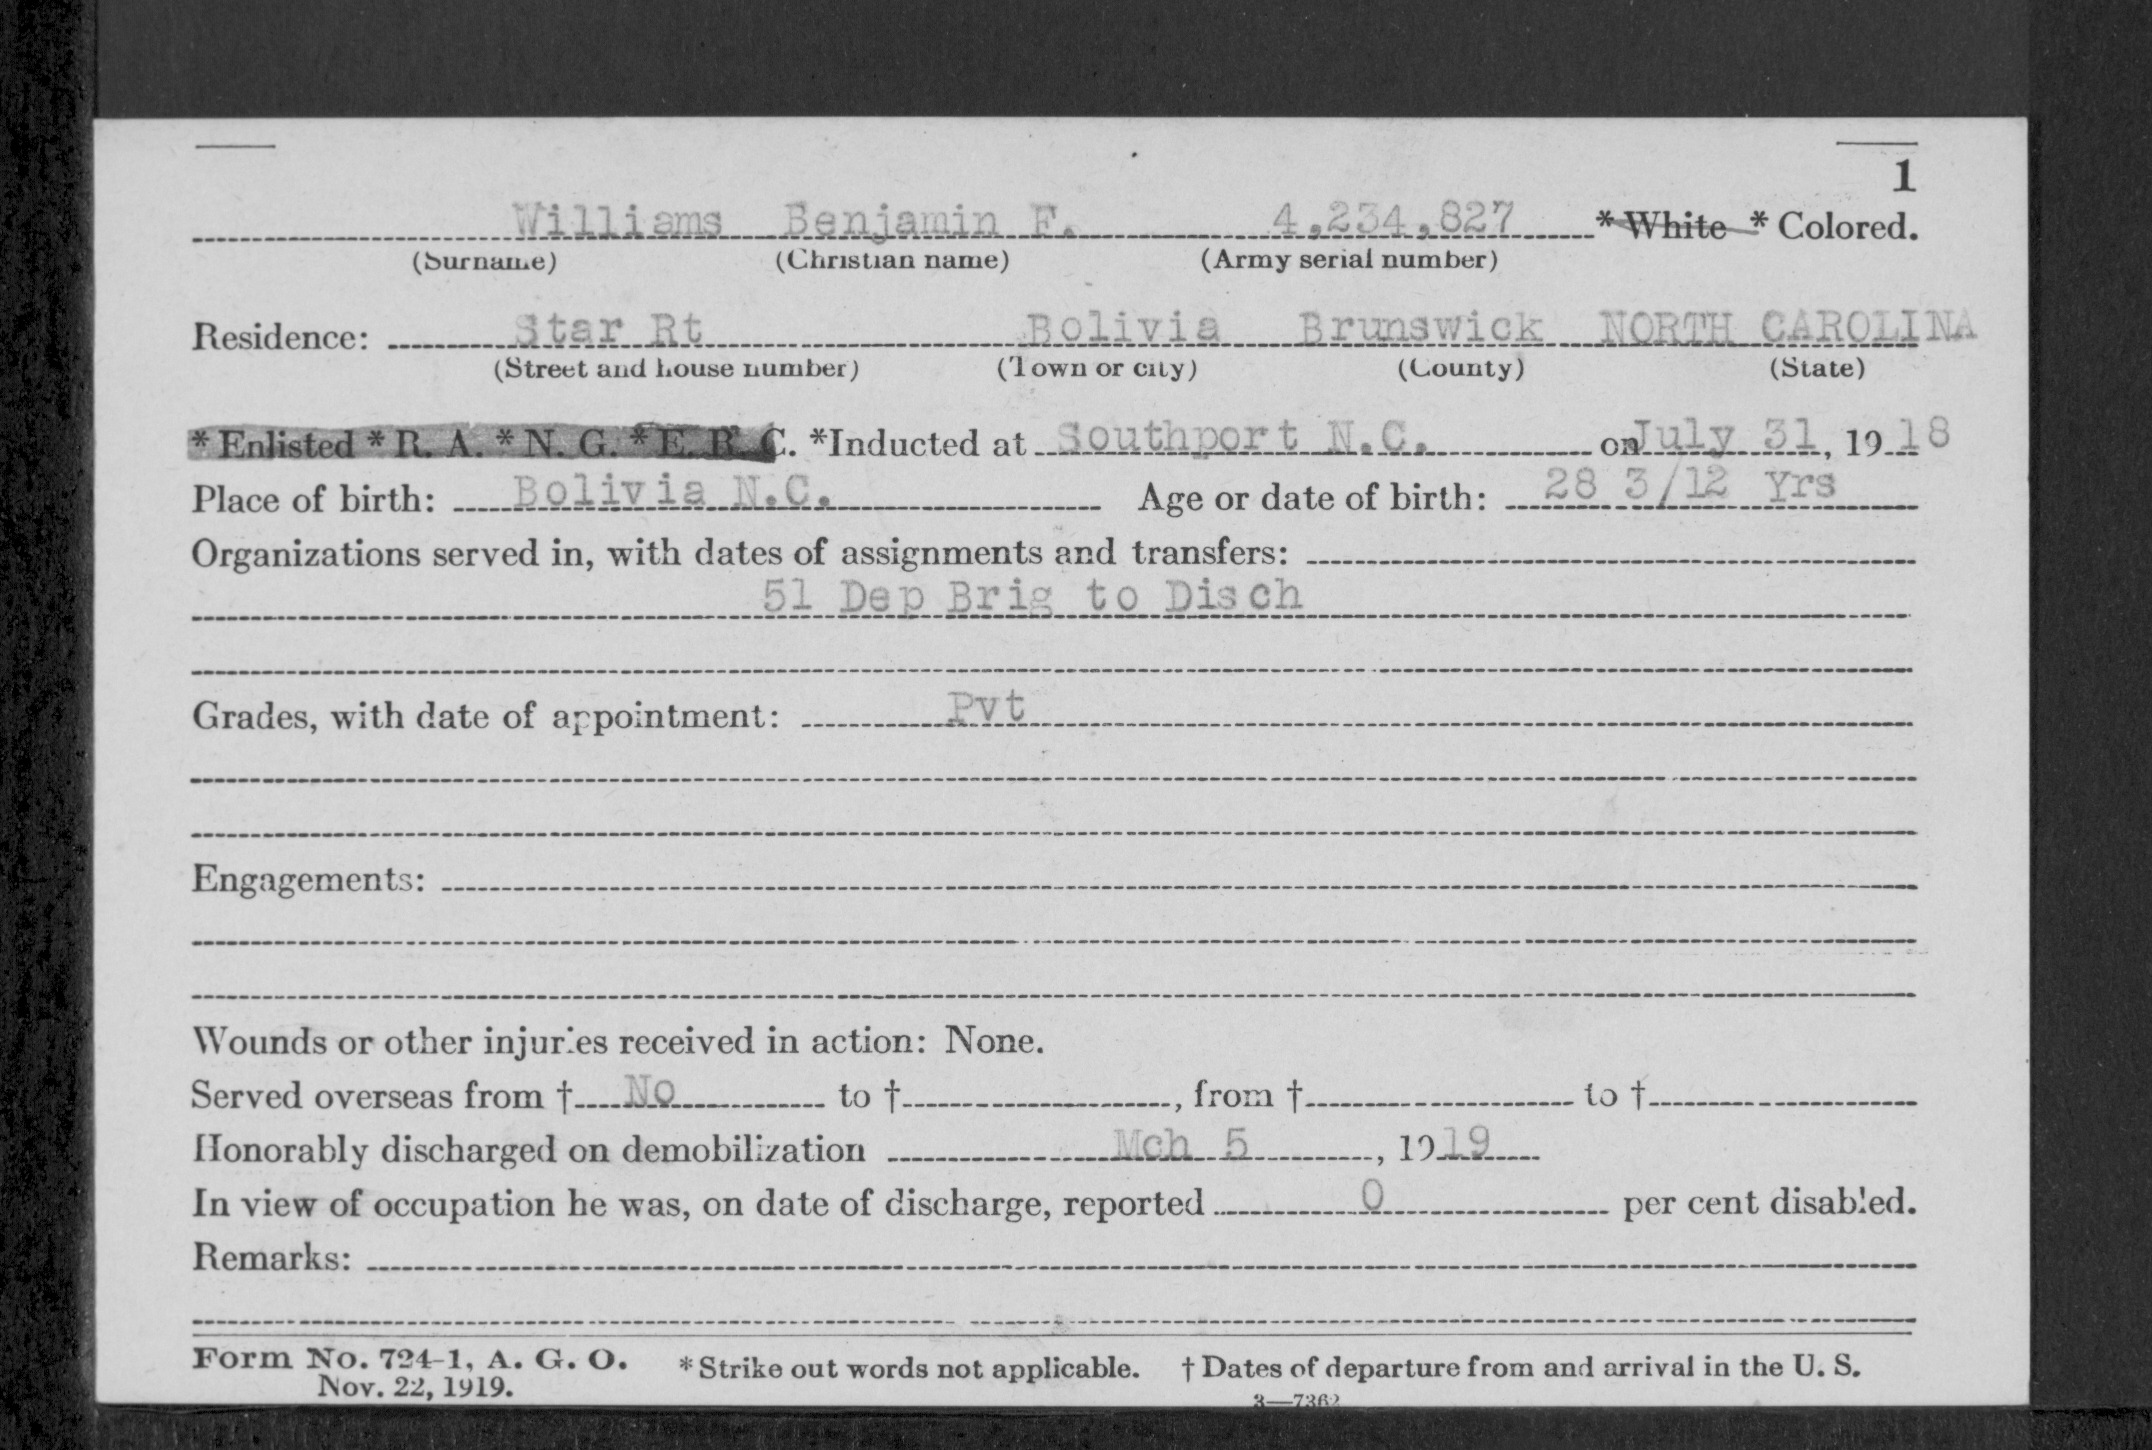 1
Williams Benjamin F. 4,234,827 * White * Colored.
(Surname) (Christian name) (Army serial number)
Residence: Star Rt Bolivia Brunswick NORTH CAROLINA
(Street and house number) (Town or city) (County) (State)
* Enlisted * R. A. * N. G. * E. R. C. *Inducted at Southport N.C. on July 31, 19 18
Place of birth: Bolivia N.C. Age or date of birth: 28 3/12 Yrs
Organizations served in, with dates of assignments and transfers:
51 Dep Brig to Disch
Grades, with date of appointment: Pvt
Engagements:
Wounds or other injuries received in action: None.
Served overseas from † No to †, from † to †
Honorably discharged on demobilization Mch 5, 19 19
In view of occupation he was, on date of discharge, reported 0 per cent disabled.
Remarks:
Form No. 724-1, A. G. O. * Strike out words not applicable. † Dates of departure from and arrival in the U. S.
Nov. 22, 1919.
3—7362